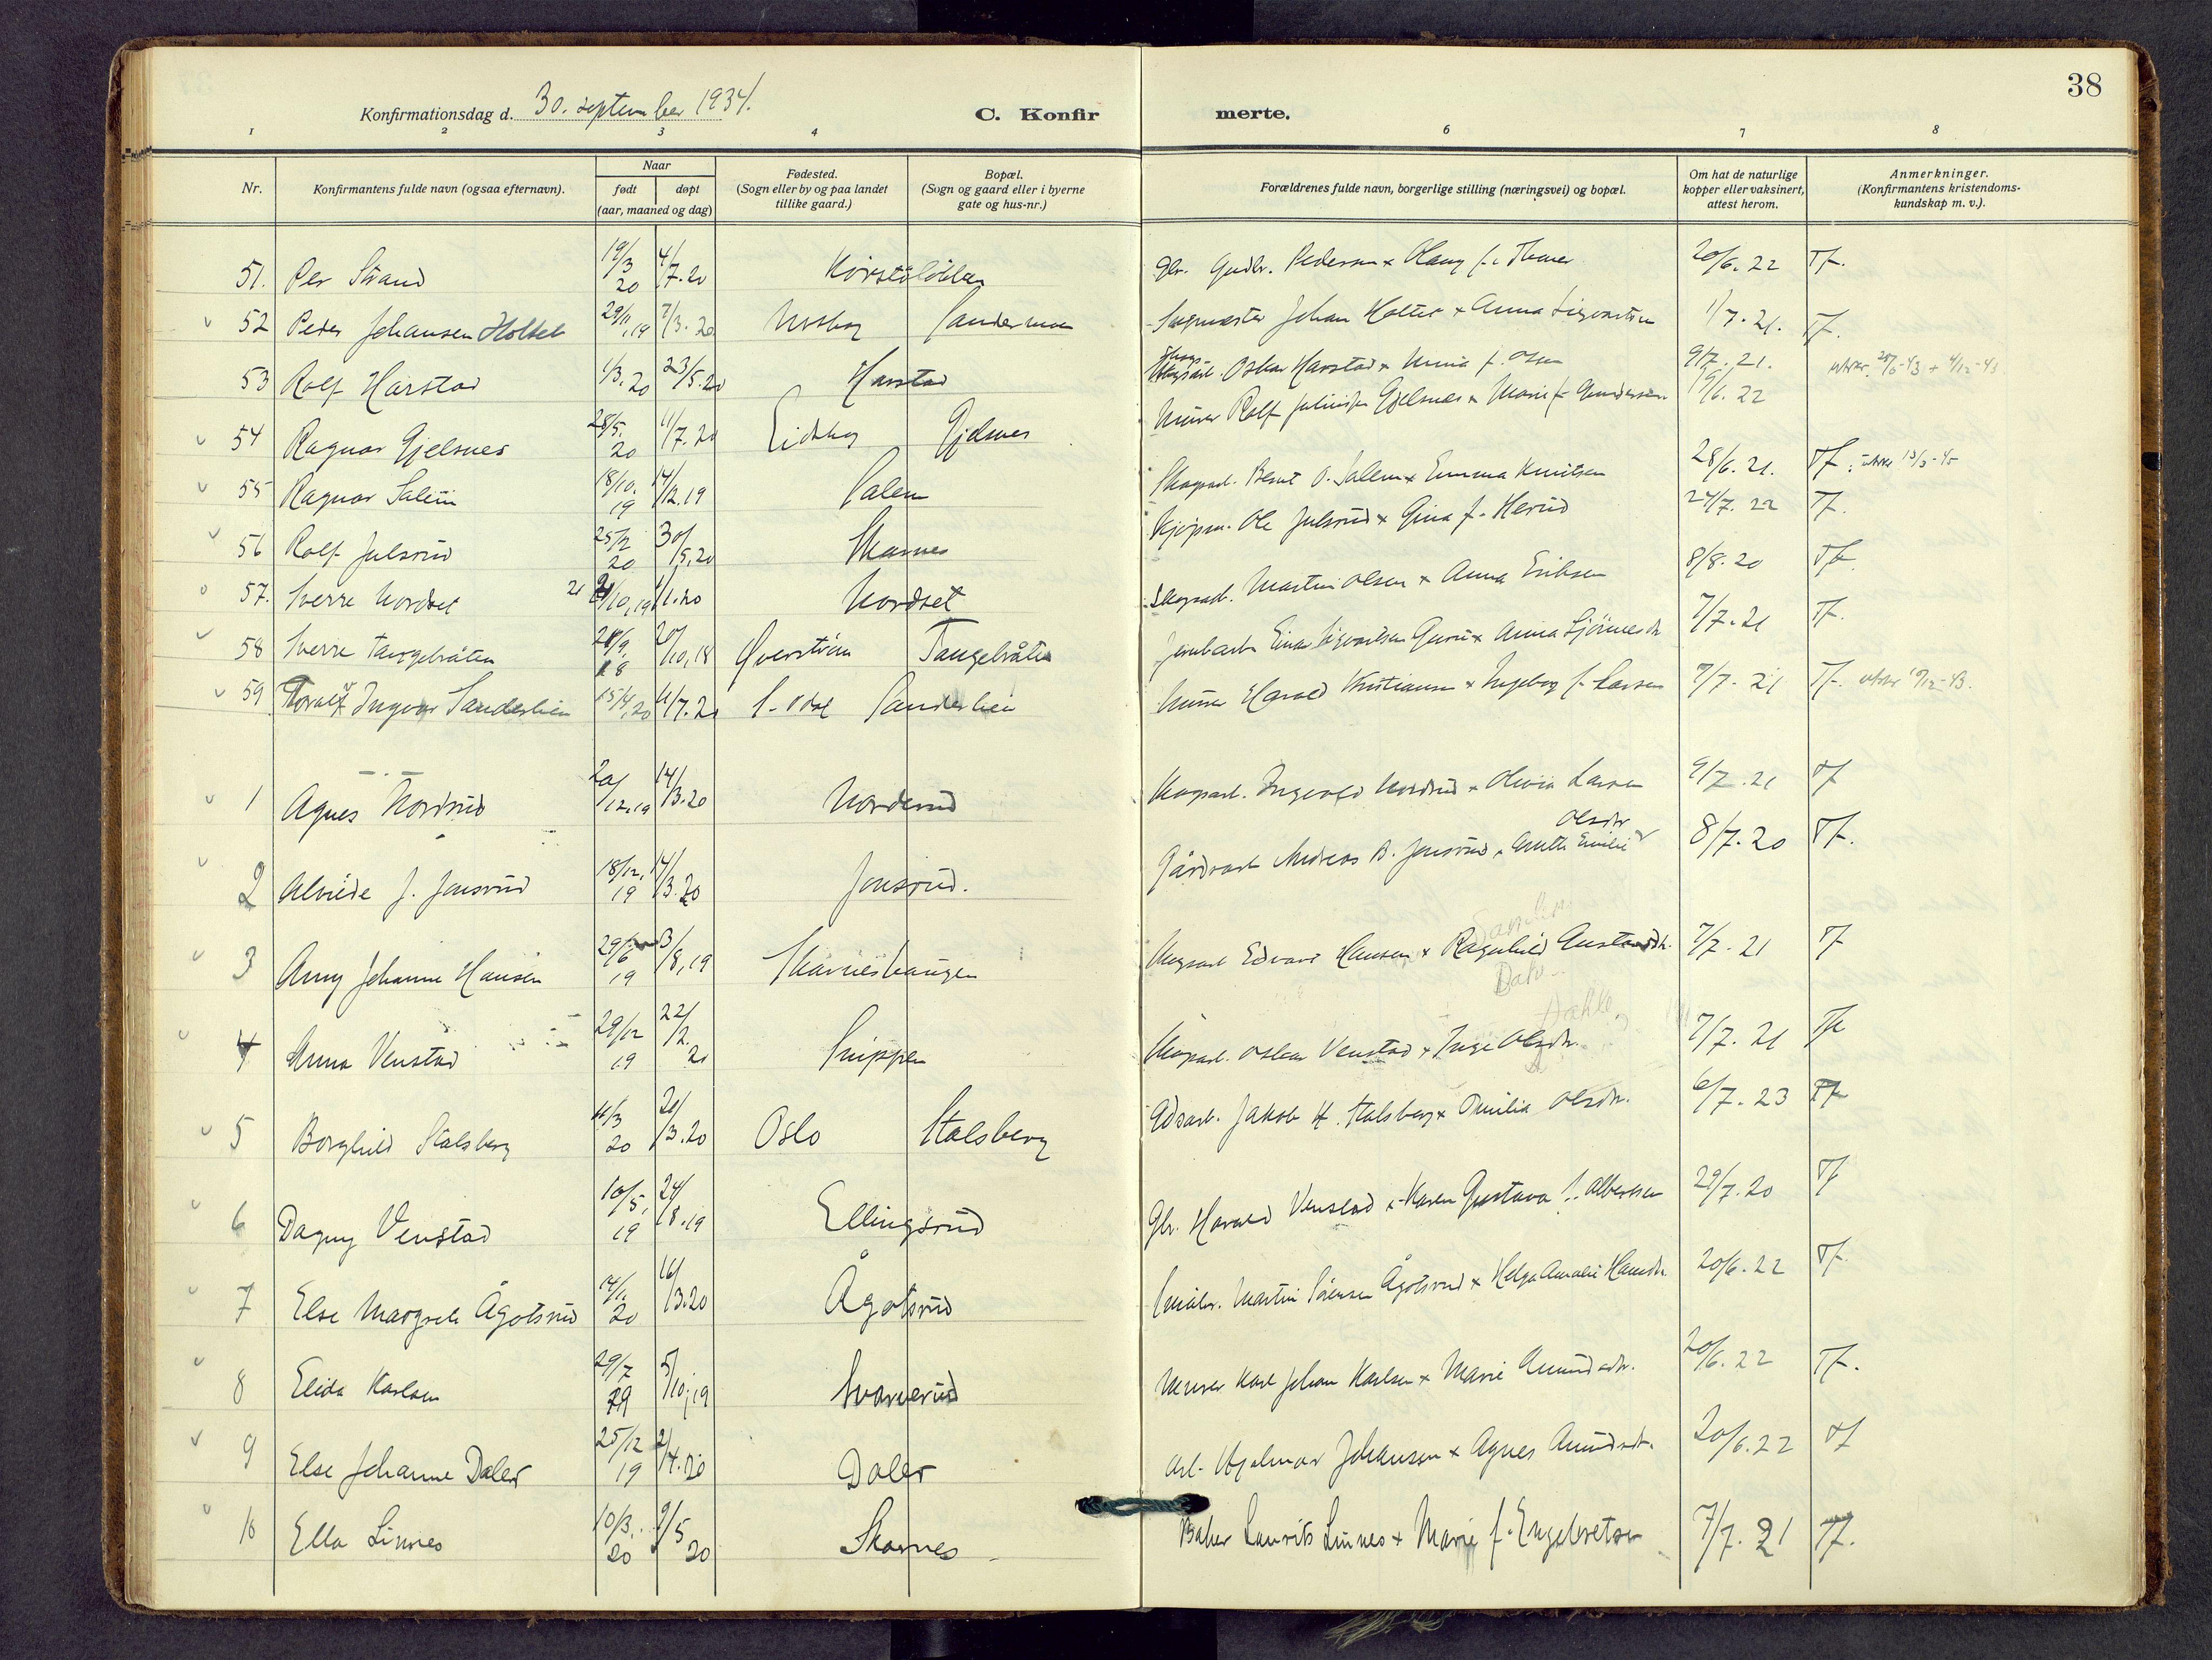 38
Konfirmationsdag d. 30. september 1934. C. Konfir merte.
1 2 3 4 6 7 8
Nr. Konfirmantens fulde navn (ogsaa efternavn). Naar født døpt (aar, maaned og dag) Fødested. (Sogn eller by og paa landet tillike gaard.) Bopæl. (Sogn og gaard eller i byerne gate og hus-nr.) Forældrenes fulde navn, borgerlige stilling (næringsvei) og bopæl. Om hat de naturlige kopper eller vaksinert, attest herom. Anmerkninger. (Konfirmantens kristendoms-kundskap m. v.).
51. Per Strand 19/3 20 4/7.20 Gbr. Gudbr. Pedersen x Olaug f. 20/6.22 Tf.
52 Peder Johansen Holtet 29/11,19 7/3.20 Sandermoen Sagmester Johan Holtet x Anna Sigvartsen 1/7.21. Tf.
53 Rolf Harstad 1/3.20 23/5.20 Harstad Skogsarb. Oskar Harstad x f. Olsen 9/7.21.
54 Ragnar Gjelsnes 28/5. 20 11/7.20 Eidskog Gjelsnes Murer Rolf Gjelsnes x Marie f. Gundersen 19/6.22
55 Ragnar Salen 18/10. 19 14/12.19 Salen Skogsarb. Bernt O. Salen x Emma Knutsen 28/6.21. Tf.
56 Rolf Julsrud 25/2 20 30/5,20 Skarnes Kjøpm. Ole Julsrud x Gina f. Herud 24/7.22 Tf.
57. Sverre Nordset 21/10,19 1/1.20 Nordset Skogsarb. Martin Olsen x Anna Eriksen 8/8.20 Tf.
58 Sverre Tangebråten 28/9. 18 20/10,18 Tangebråten Jernbarb. Einar x Anna 7/7.21 Tf.
59 Thoralf Ingvar Sanderlien 15/4,20 11/7.20 S-Odal Sanderlien Murer Harald Kristiansen x Ingeborg f. Larsen 7/7.21 Tf.
1 Agnes Nordrud 20/12,19 14/3.20 Norderud Skogsarb. Ingevald Nordrud x Olivia Larsen 9/7.21 Tf
2 Alvilde J. Jonsrud 18/12, 19 14/3.20 Jonsrud. Gårdsarb Andreas B. Jonsrud x Anette Emilie Olsdtr 8/7.20 Tf.
3 Anny Johanne Hansen 29/6 19 3/8,19 Skarneshaugen Skogsarb Edvard Hansen x Ragnhild 7/7.21 Tf
4 Anna Venstad 29/12 19 22/2. 20 Snippen Skogsarb. Oskar Venstad x Inga Olsdtr. 7/7.21 Tf
5 Borghild Stalsberg 11/3 20 20/3.20 Oslo Stalsberg Gdsarb. Jakob H. Stalsberg x Emilia Olsdtr. 6/7.23 Tf
6 Dagny Venstad 10/5, 19 24/8.19 Ellingsrud Gbr. Harald Venstad x Karen Gustava f. Albertsen 29/7.20 Tf
7 Else Margrete Ågotsrud 14/1. 20 16/3.20 Ågotsrud Småbr. Martin Sørensen Ågotsrud x Helga Amalie Hansdtr. 20/6.22 Tf.
8 Elida Karlsen 29/7 19 5/10,19 Svarverud Murer Karl Johan Karlsen x Marie Amundsdtr. 20/6.22 Tf.
9 Else Johanne Daler 25/12 19 2/4.20 Daler Arb. Hjalmar Johansen x Agnes Amundsdt. 20/6.22 Tf
10 Ella Linnes 10/3. 20 9/5 20 Skarnes Baker Laurits Linnes x Marie f. Engebretsen 7/7.21 Tf.